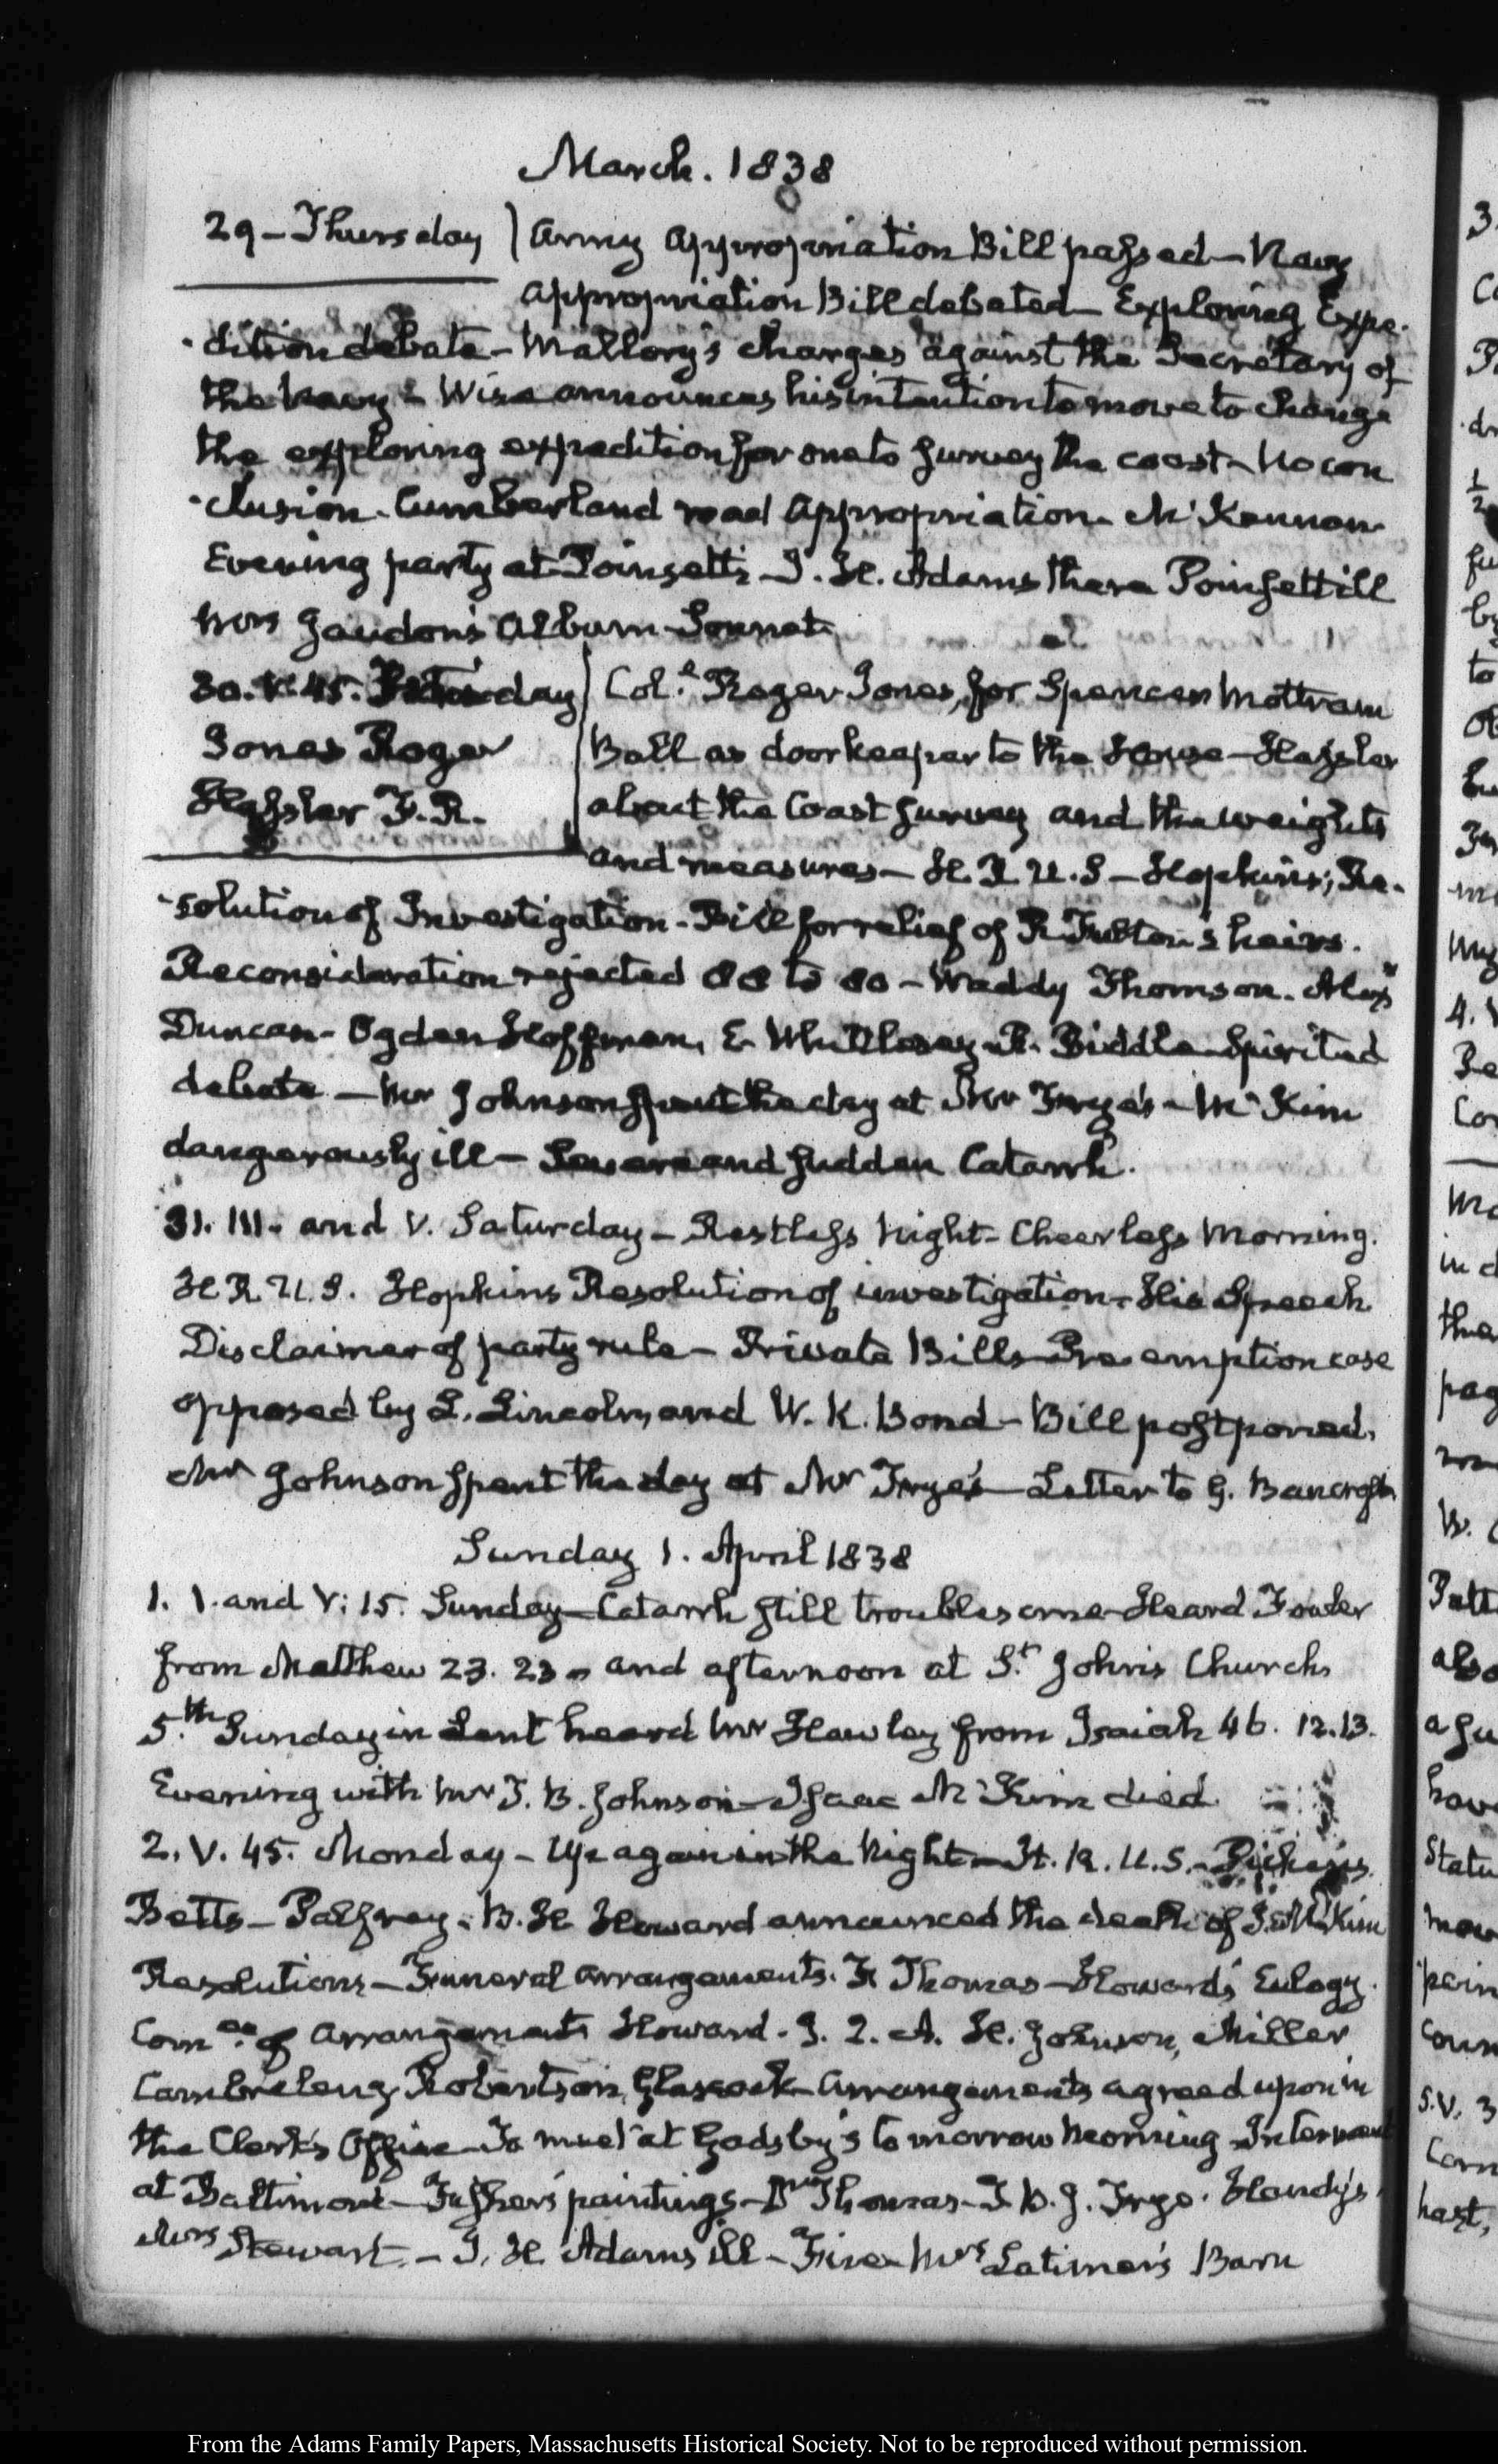 March. 1838
29 - Thursday ) Army Appropriation Bill passed - Navy
appropriation Bill debated - Exploring Expe-
-dition debate - Mallory's charges against the Secretary of
the Navy - Wise announces his intention to move to change
the exploring expedition for one to survey the coast - No con
-clusion. Cumberland road Appropriation. McKennan
Evening party at Poinsett's - I. H. Adams there Poinsett ill
Mrs Album Sonnet
30. V. 45. day Col.l Roger Jones, for Spencer Mottram
Jones Roger Ball as doorkeeper to the House - Hassler
Hassler F. R. about the Coast survey and the weights
and measures - H. R. U. S - Hopkins's Re-
-solution of Investigation - Bill for relief of R. Fulton's heirs.
Reconsideration rejected 88 to 80 - Waddy Thomson. Alexr
Duncan - Ogden Hoffman, E. Whittlesey - R. Biddle - Spirited
debate - Mr Johnson spent the day at Mr Frye's - McKim
dangerously ill - Severe and sudden Catarrh.
31. III. and V. Saturday - Restless Night - Cheerless Morning.
H. R. U. S. Hopkins Resolution of investigation - His Speech
Disclaimer of party rule - Private Bills Pre-emption case
opposed by L. Lincoln, and W. K. Bond - Bill postponed.
Mr Johnson spent the day at Mr Frye's - Letter to G. Bancroft
Sunday 1. April 1838
1. V. and V: 15. Sunday - Catarrh still troublesome - Heard Fowler
from Matthew 23. 23 - and afternoon at St. John's Church
5.th Sunday in Lent heard Mr Hawley from Isaiah 46. 12. 13.
Evening with Mr T. B. Johnson - Isaac McKim died
2. V. 45. Monday - Up again in the Night - H. R. U. S. - Pickens
Betts - Palfrey - B. H Howard announced the death of I. McKim
Resolutions - Funeral arrangements. F. Thomas - Howard's Eulogy.
Comee. of Arrangements Howard. J. Q. A. H. Johnson, Miller
Cambreleng Robertson, Glascock - Arrangements agreed upon in
the Clerk's Office - To meet at Gadsby's to morrow morning - Interment
at Baltimore - Fisher's paintings - Dr Thomas - T. B. J. Frye. Handy's
Mrs Stewart. - I. H. Adams ill - Fire - Mrs Latimer's Barn
From the Adams Family Papers, Massachusetts Historical Society. Not to be reproduced without permission.